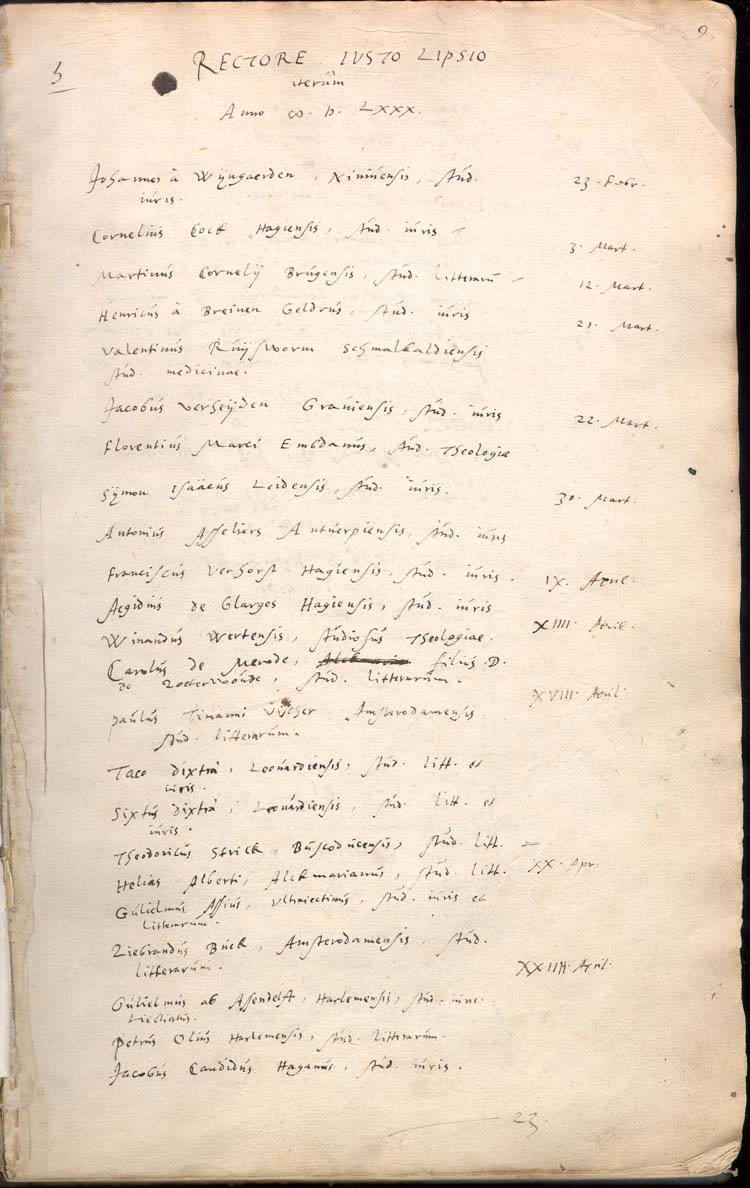 9
RECTORE IUSTO LIPSIO
iterum
Anno LXXX.
Johannes à Wÿngaerden, stud. 23. Febr.
iuris.
Cornelius Cock Hagiensis, stud. iuris 3. Mart.
Martinus Cornelij Brugensis, stud. litterarū 12. Mart.
Henricus à Breinen Geldrus, stud. iuris 21. Mart.
Valentinus Ruijsworm Schmalkaldiensis
stud. medicinae.
Jacobus Verheijden Graviensis, stud. iuris 22. Mart.
Florentius Marci Embdanus, stud. Theologiæ
Sÿmon Isaäcus Leidensis, stud. iuris. 30. Mart.
Antonius Asseliers Antuerpiensis, stud. iuris
Franciscus Verhorst Hagiensis, stud. iuris. IX. April.
Aegidius de Glarges Hagiensis, stud. iuris
Winandus Wertensis, studiosus Theologiae. XIIII April.
Carolus de Merode, filius D.
de Zoeterwoude, stud. litterarum.
XVIII April.
Paulus Amsterodamensis
stud. litterarum.
Taco dixtra, Leouardiensis, stud. litt. et
iuris.
Sixtus dixtra, Leouardiensis, stud. litt. et
iuris.
Theodoricus Strick, Buscoducensis, stud. litt.
Helias Alberti, Alckmarianus, stud. litt. XX. Apr.
Gulielmus Assius, Ultraiectinus, stud. iuris et
litterarum.
Ziebrandus Buck, Amsterodamensis, stud.
litterarum. XXIIII. April.
Gulielmus ab Assendelft, Harlemensis, stud. iuris.
Petrus Olius Harlemensis, stud. litterarum.
Jacobus Candidus Haganus, stud. iuris.
23.